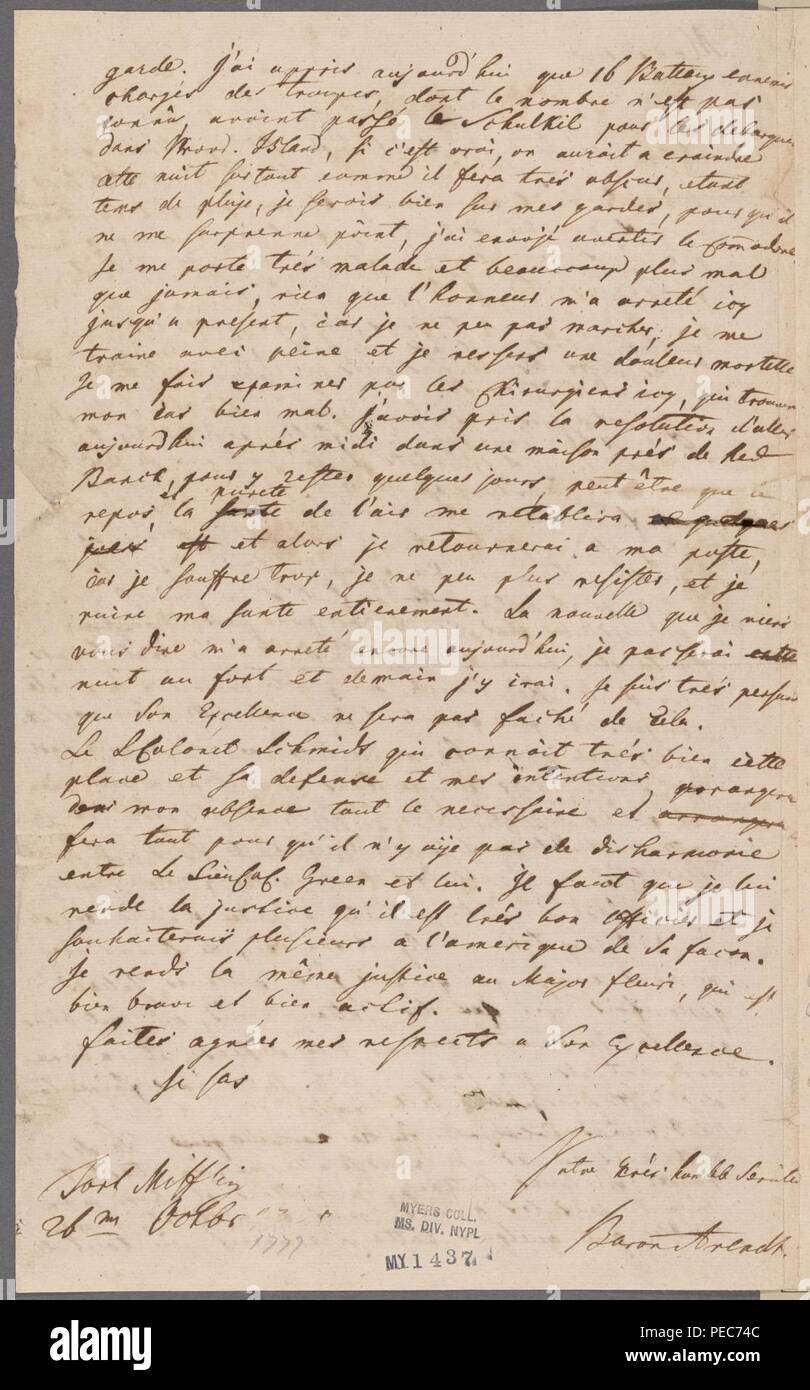 garde. j'ai appris aujourd'hui que 16 Batteaux ennemis
chargés des troupes, dont le nombre n'est pas
connû, avoient passé le Schulkil pour les debarquer
dans Prov. Island, si c'est vrai, on auroit a craindre
cette nuit surtout comme il fera trés obscur, etant
tems de pluje, je serois bien sur mes gardes, pour qu'il
ne me surprenne point, j'ai envojé avertir le Comodore
Je me porte trés malade et beaucoup plus mal
que jamais, rien que l'honneur m'a arreté icy
jusqu'a present, car je ne peu pas marcher, je me
traine avec peine et je ressens une douleur mortelle
Je me fais examiner par les Chirurgiens icy, qui trouven
mon cas bien mal. J'avois pris la resolution d'aller
aujourd'hui aprés midi dans une maison prés de Red
Banck, pour y rester quelques jours, peut être que ce
et pureté
repos, la santé de l'air me retablira en quelques
jours et et alors je retournerai a ma poste,
car je souffre trop, je ne peu plus resister, et je
ruine ma santé entierement. La nouvelle que je viens
vous dire m'a arreté encore aujourd'hui, je passerai cette
nuit au fort et demain j'y irai. Je suis trés persua
que Son Excellence ne sera pas faché de cela.
Le LColonel Schmidt qui connoit trés bien cette
place et sa defense et mes intentions, y arangera
dans mon absence tout le necessaire et arrangera
fera tout pour qu'il n'y aije pas de disharmonie
entre Le Green et lui. Il faut que je lui
rende la justice qu'il est trés bon Officier et je
souhaiterais plusieurs a l'amerique de sa facon.
Je rends la même justice au Major fleuri, qui est
bien brave et bien actif.
faites agréer mes respects a Son Excellence.
Je sus
Votre trés humble Serviteu
Fort Mifflin
26m Octobr
1777
Baron Arendt.
MYERS COLL.
MS. DIV. NYPL
MY 1437
alamy
PEC74C
alamy
Image ID: PEC74C
www.alamy.com